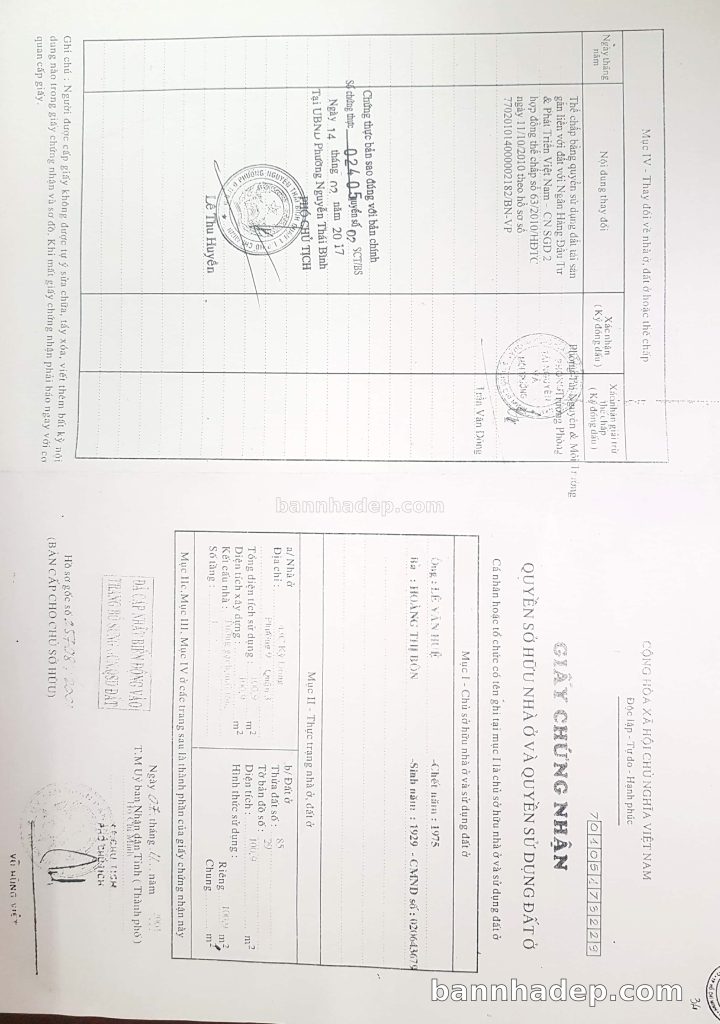 Mục IV - Thay đổi về nhà ở, đất ở hoặc thế chấp
Ngày tháng năm
Nội dung thay đổi
Xác nhận
( Ký đóng dấu )
Xác nhận giải trừ thế chấp
( Ký đóng dấu )
Thế chấp bằng quyền sử dụng đất tài sản
gắn liền với đất với Ngân Hàng Đầu Tư
& Phát Triển Việt Nam - CN SGD 2
hợp đồng thế chấp số 63/2010/HĐTC
ngày 11/10/2010 theo hồ sơ số
77020101400002182/BN-VP
Trần Văn Dong
Chứng thực bản sao đúng với bản chính
Số chứng thực 02405 quyển số 02 SCT/BS
Ngày 14 tháng 02 năm 2017
Tại UBND Phường Nguyễn Thái Bình
PHÓ CHỦ TỊCH
Lê Thu Huyền
Ghi chú : Người được cấp giấy không được tự ý sửa chữa, tẩy xóa, viết thêm bất kỳ nội
dung nào trong giấy chứng nhận và sơ đồ. Khi mất giấy chứng nhận phải báo ngay với cơ
quan cấp giấy.
CỘNG HÒA XÃ HỘI CHỦ NGHĨA VIỆT NAM
Độc lập - Tự do - Hạnh phúc
GIẤY CHỨNG NHẬN
QUYỀN SỞ HỮU NHÀ Ở VÀ QUYỀN SỬ DỤNG ĐẤT Ở
Cá nhân hoặc tổ chức có tên ghi tại mục I là chủ sở hữu nhà ở và sử dụng đất ở
Mục I - Chủ sở hữu nhà ở và sử dụng đất ở
Ông : LÊ VĂN HUÊ -Chết năm : 1975
Bà : HOÀNG THỊ BỐN -Sinh năm : 1929 - CMND số : 020643679
Mục II - Thực trạng nhà ở, đất ở
a/ Nhà ở
Địa chỉ :
Phường 9 Quận 3
Tổng diện tích sử dụng : m2
Diện tích xây dựng : m2
Kết cấu nhà :
Số tầng :
b/ Đất ở
Thửa đất số : 88
Tờ bản đồ số :
Diện tích : m2
Hình thức sử dụng :
Riêng m2
Chung m2
Mục IIc, Mục III, Mục IV ở các trang sau là thành phần của giấy chứng nhận này
Ngày 07 tháng năm
T.M Ủy ban Nhân dân Tỉnh ( Thành phố )
PHÓ CHỦ TỊCH
VŨ HÙNG VIỆT
ĐÃ CẬP NHẬT BIẾN ĐỘNG VÀO
Hồ sơ gốc số
(BẢN CẤP CHO CHỦ SỞ HỮU)
34
bannhadep.com
bannhadep.com